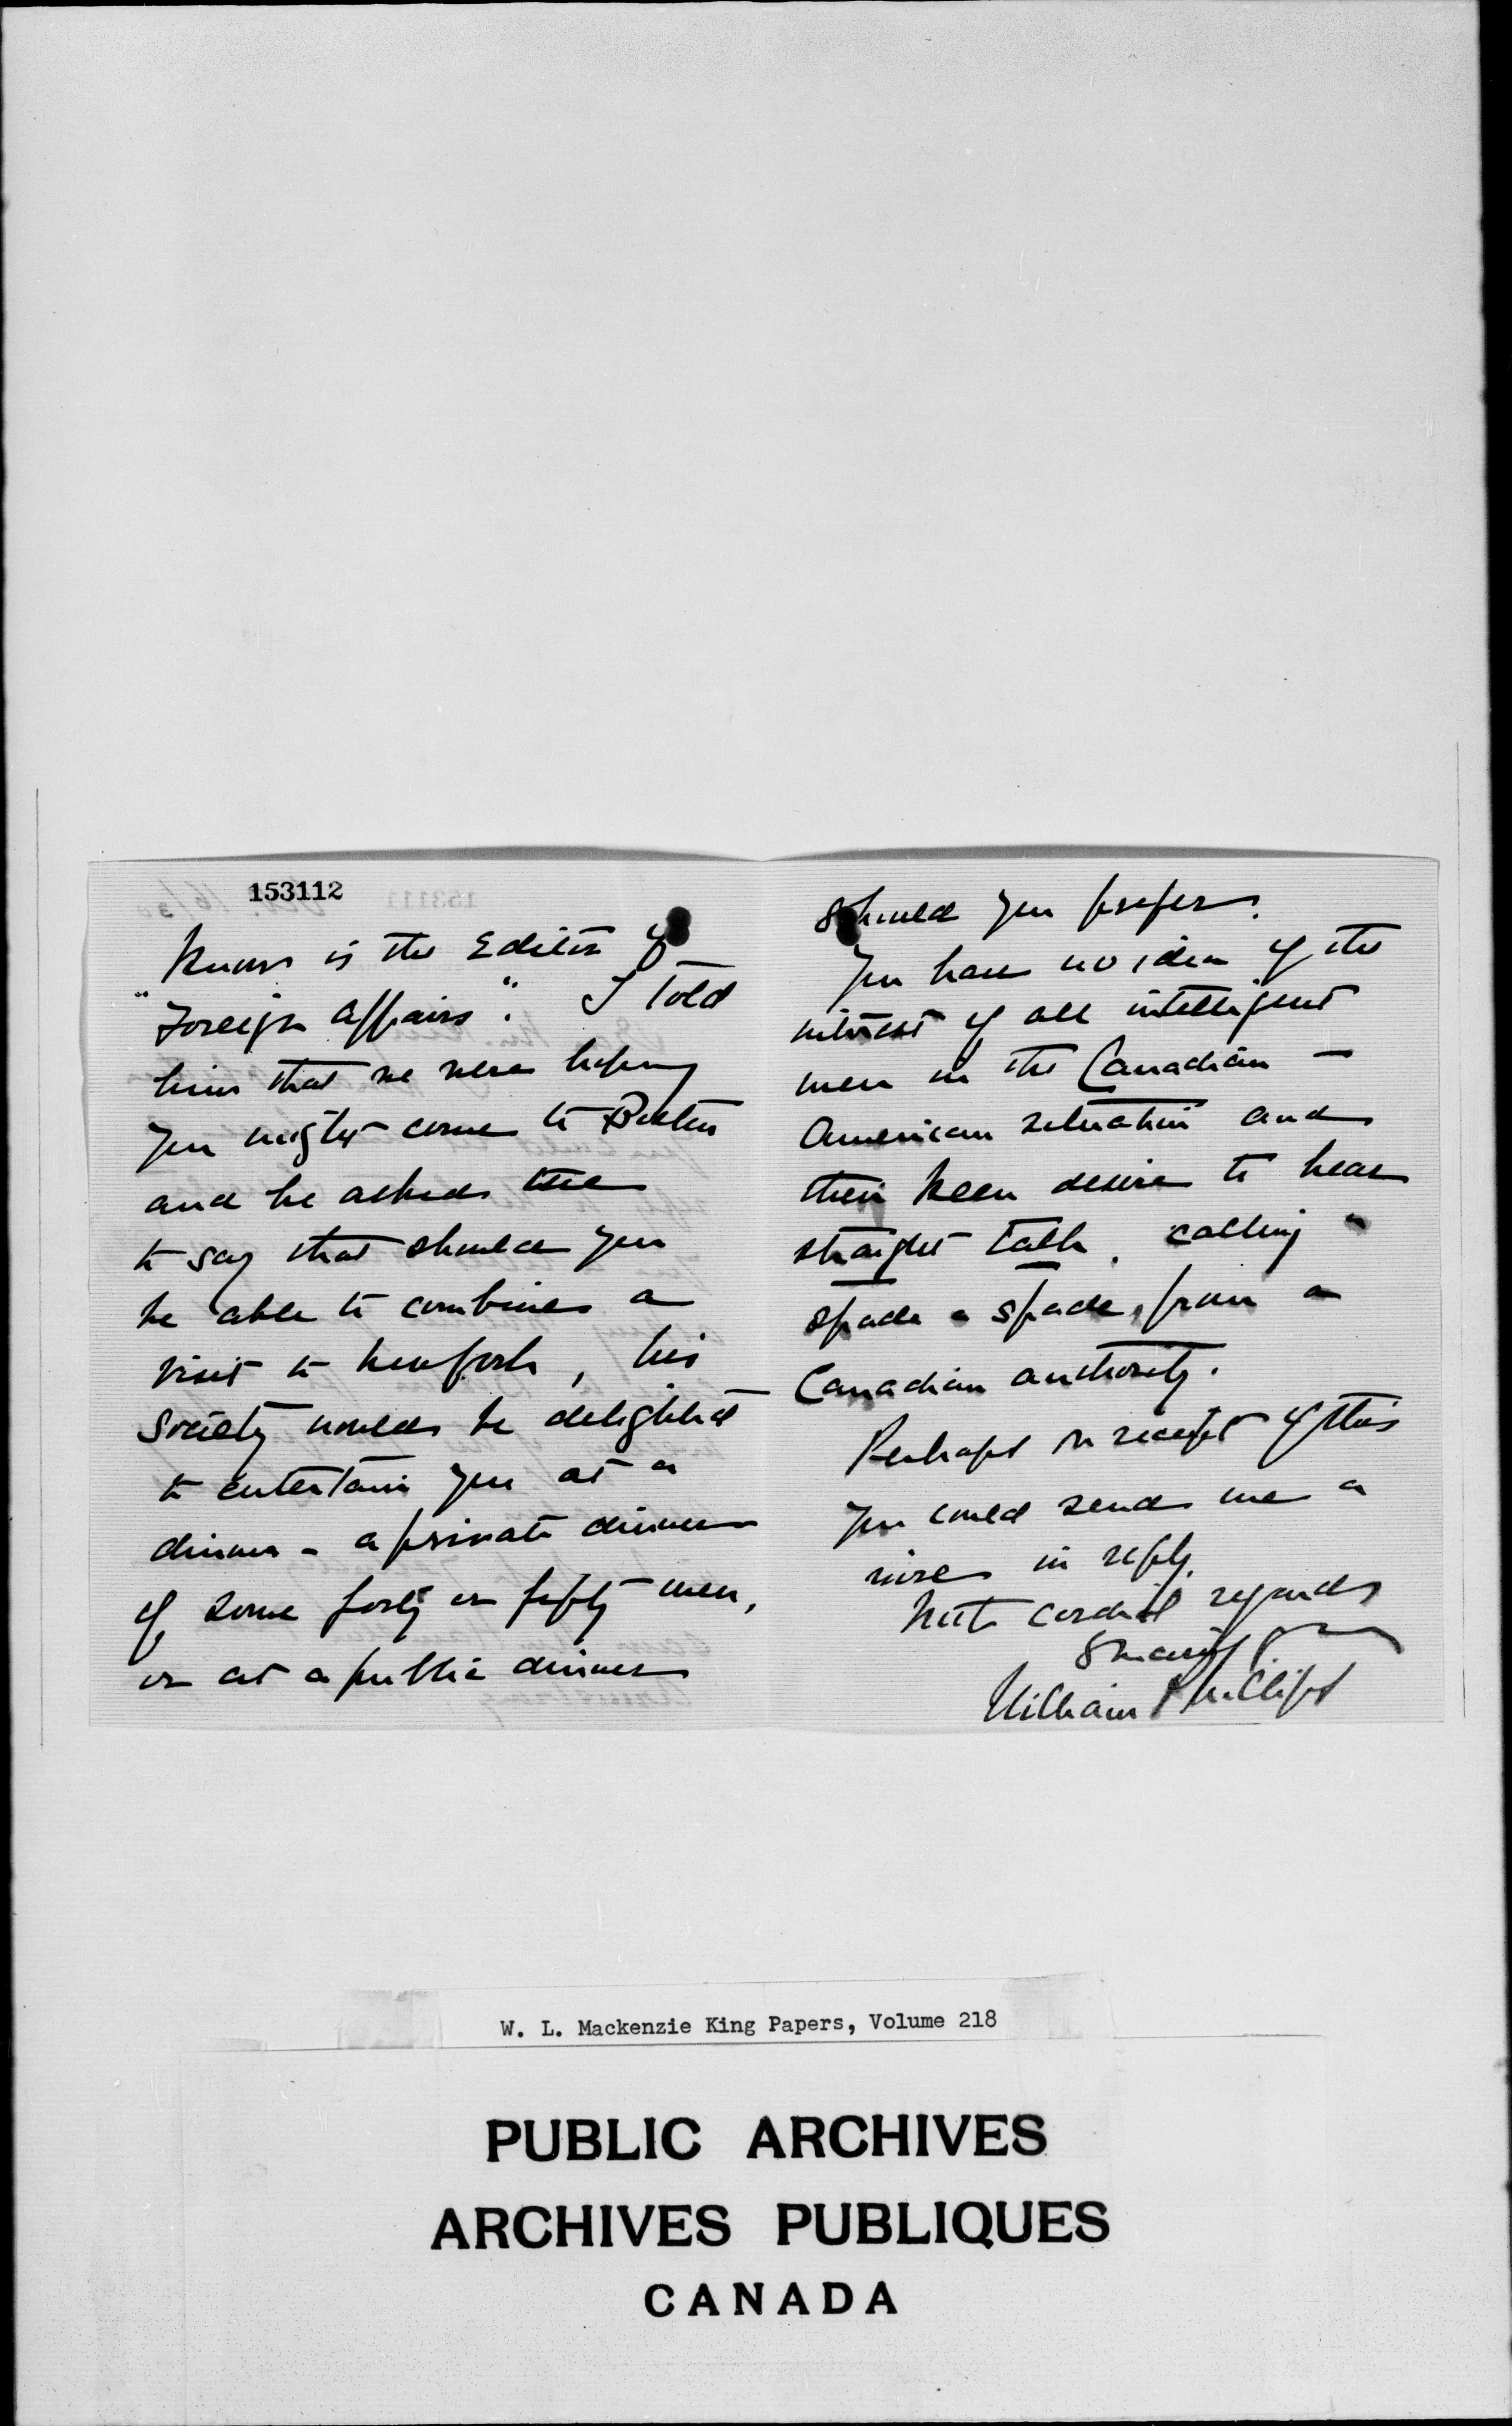 153112
know is the Editor of
"Foreign Affairs". I told
him that we were hoping
you might come to Boston
and he asked me
to say that should you
be able to combine a
visit to New York, his
Society would be delighted
to entertain you at a
dinner - a private dinner
of some forty or fifty men,
or at a public dinner
should you prefer.
You have no idea of the
interest of all intelligent
men in the Canadian -
American situation and
their keen desire to hear
straight talk, calling a
spade a spade, from a
Canadian authority.
Perhaps on receipt of this
you could send me a
wire in reply.
With cordial regards
Sincerely
William Phillips
W. L. Mackenzie King Papers, Volume 218
PUBLIC ARCHIVES
ARCHIVES PUBLIQUES
CANADA